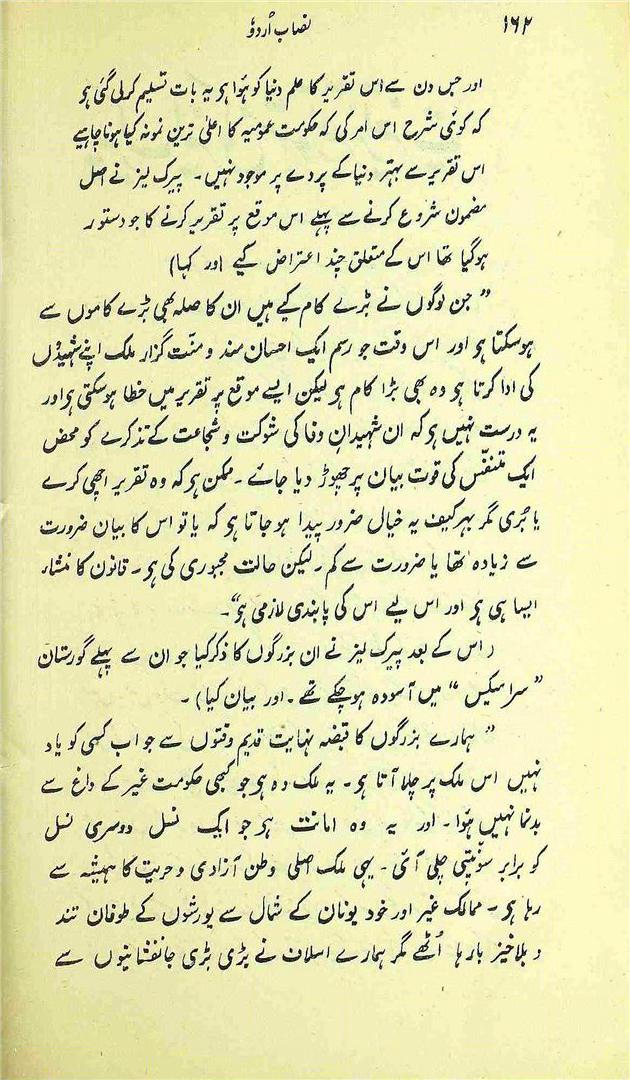 ۱۶۲ نصاب اُردو
اور جس دن سے اس تقریر کا علم دنیا کو ہوا ہو یہ بات تسلیم کرلی گئی ہو
کہ کوئی شرح اس امر کی کہ حکومت عمومیہ کا اعلیٰ ترین نمونہ کیا ہونا چاہیے
اس تقریر سے بہتر دنیا کے پردے پر موجود نہیں۔ پیرک لیز نے اصل
مضمون شروع کرنے سے پہلے اس موقع پر تقریر کرنے کا جو دستور
ہوگیا تھا اس کے متعلق چند اعتراض کیے (اور کہا)
”جن لوگوں نے بڑے کام کیے ہیں ان کا صلہ بھی بڑے کاموں سے
ہوسکتا ہو اور اس وقت جو رسم ایک احسان مند و منّت گزار ملک اپنے شہیدوں
کی ادا کرتا ہو وہ بھی بڑا کام ہو لیکن ایسے موقع پر تقریر میں خطا ہوسکتی ہو اور
یہ درست نہیں ہو کہ ان شہیدانِ وفا کی شوکت و شجاعت کے تذکرے کو محض
ایک متنفّس کی قوت بیان پر چھوڑ دیا جائے۔ ممکن ہو کہ وہ تقریر اچھی کرے
یا بُری مگر بہرکیف یہ خیال ضرور پیدا ہوجاتا ہو کہ یا تو اس کا بیان ضرورت
سے زیادہ تھا یا ضرورت سے کم۔ لیکن حالت مجبوری کی ہو۔ قانون کا منشاء
ایسا ہی ہو اور اس لیے اس کی پابندی لازمی ہو“۔
(اس کے بعد پیرک لیز نے ان بزرگوں کا ذکر کیا جو ان سے پہلے گورستان
”سرامیکس“ میں آسودہ ہوچکے تھے۔ اور بیان کیا)۔
”ہمارے بزرگوں کا قبضہ نہایت قدیم وقتوں سے جو اب کسی کو یاد
نہیں اس ملک پر چلا آتا ہو۔ یہ ملک وہ ہو جو کبھی حکومت غیر کے داغ سے
بدنما نہیں ہُوا۔ اور یہ وہ امانت ہو جو ایک نسل دوسری نسل
کو برابر سونپتی چلی آئی۔ یہی ملک اصلی وطن آزادی و حریت کا ہمیشہ سے
رہا ہو۔ ممالک غیر اور خود یونان کے شمال سے یورشوں کے طوفان تند
و بلاخیز بارہا اُٹھے مگر ہمارے اسلاف نے بڑی بڑی جانفشانیوں سے